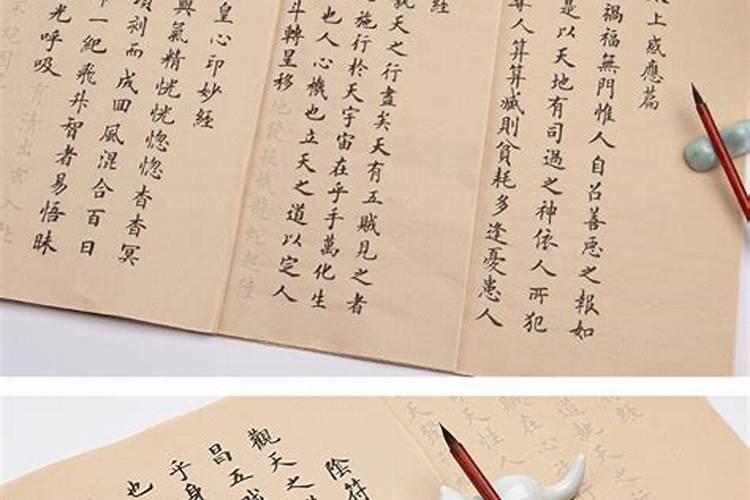 上感應篇
禍福無門惟人自召善惡之報如
是以天地有司過之神依人所犯
人算算減則貧耗多逢憂患人
經
天之行盡矣天有五賊見之者
施行於天宇宙在乎手萬化生
也人心機也立天之道以定人
斗轉星移地發殺機龍蛇起陸
皇心印妙經
與氣精恍恍惚惚杳杳冥
頃刻而成回風混合百日
一紀飛升智者易悟昧
光呼吸育清出玄入牝
陰符
觀天之
昌五賊
乎身
也